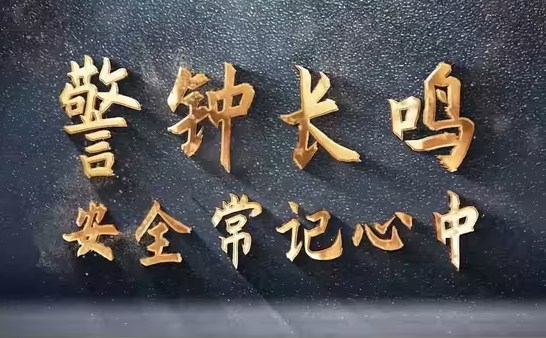 警钟长鸣
安全常记心中